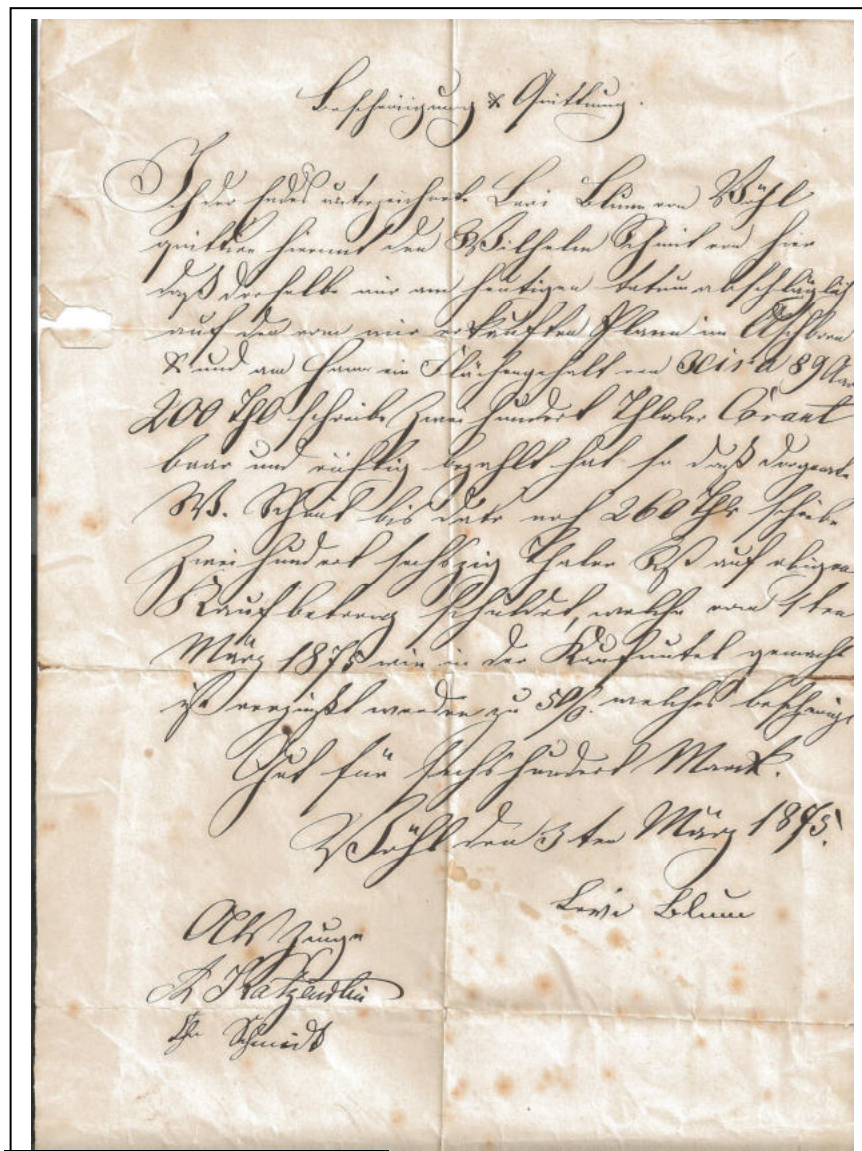 Bescheinigung & Quittung.
Ich der Endes unterzeichnete Levi Blum von Vöhl
quittire hiermit den Wilhelm Schmit von hier
daß derselbe mir am heutigen datum abschläglich
auf den vom mir erkauften Plann im Aschborn
& und am Hann ein Flächengehalt von 89 Aar
200 Thl schreibe zwei hundert Thlaler Corant
baar und richtig bezahlt hat so daß
W. Schmit bis dato noch 260 Thlr schreibe
zwei hundert sechszig Thaler auf obigen
Kaufbetrag schuldet, welche vom 1ten
März 1875 wie in der gemacht
ist verzinßt werden zu 5%. welches bescheinigt
Gut für sechshundert Marck.
Vöhl den 3ten März 1875.
Levi Blum
Als Zeuge
Katzenstein
Schmidt